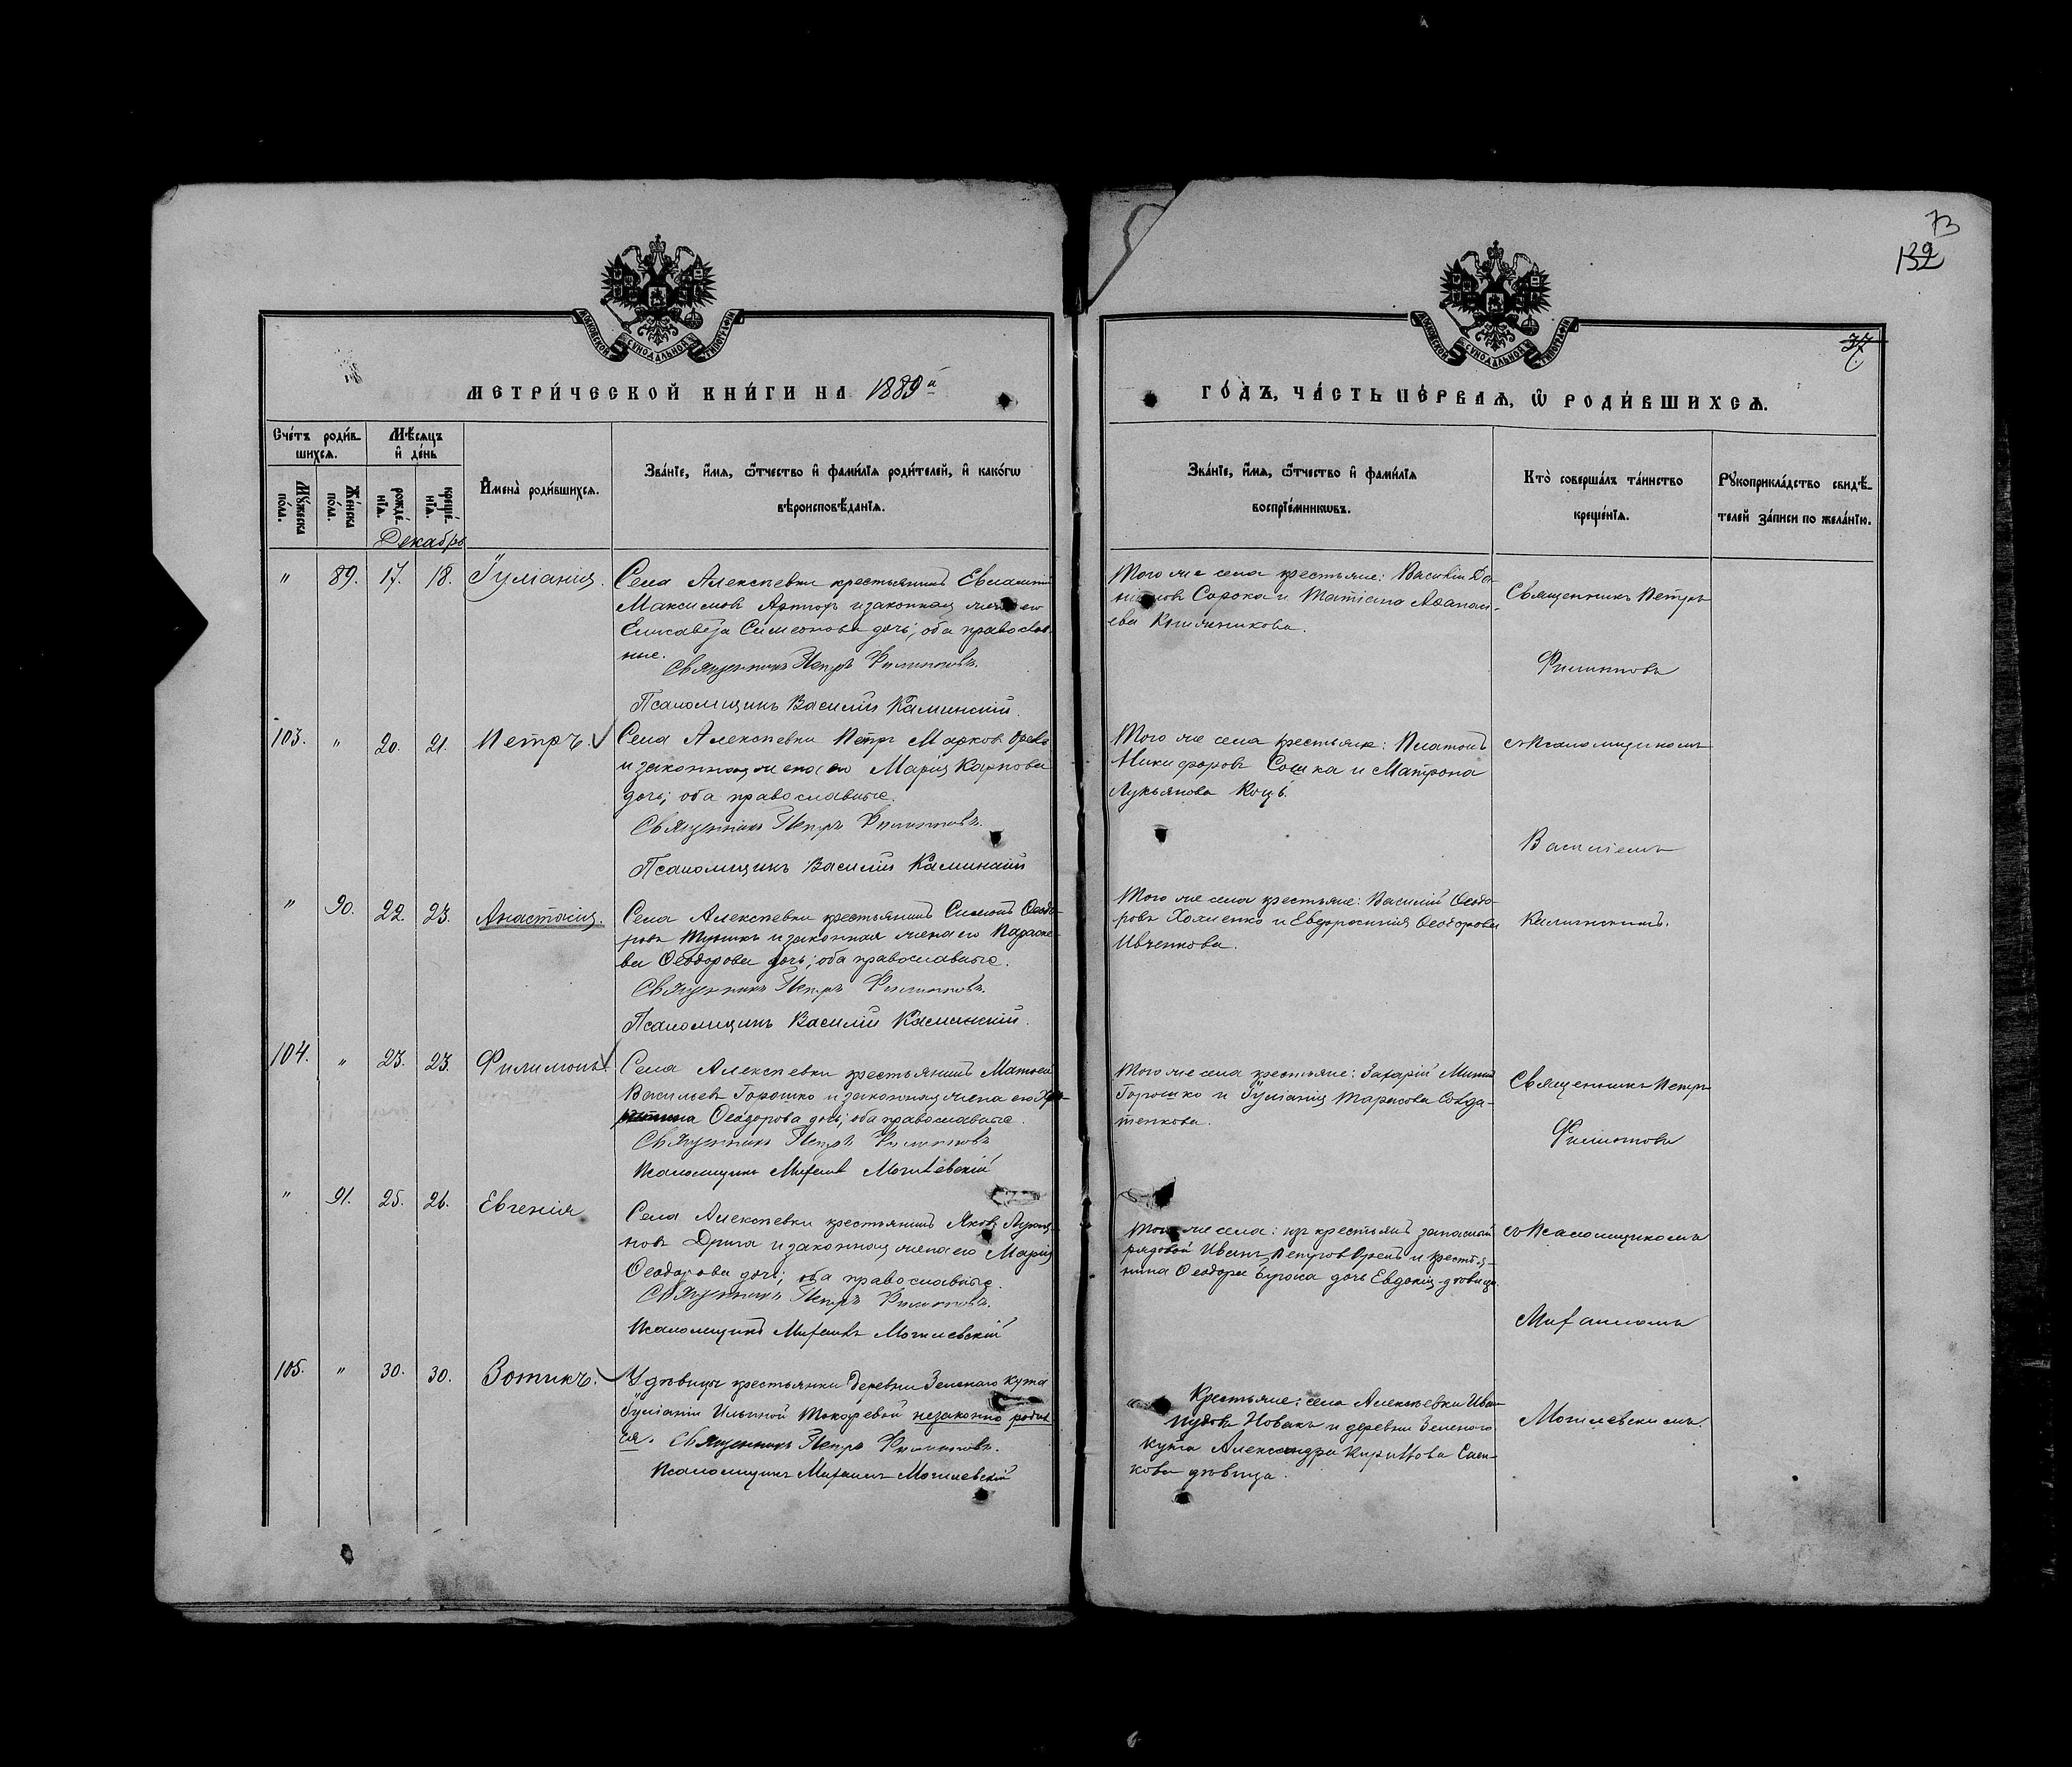 73
132
37
МОСКОВСКОЙ СѴНОДАЛЬНОЙ ТИПОГРАФІИ
МОСКОВСКОЙ СѴНОДАЛЬНОЙ ТИПОГРАФІИ
МЕТРИ́ЧЕСКОЙ КНИ́ГИ НА 1889й
ГО́ДЪ, ЧА́СТЬ ПЕ́РВАѦ, Ѽ РОДИ́ВШИХСѦ.
Сче́тъ роди́в-
шихсѧ.
Мѣ́сѧцъ
и҆ де́нь
Мꙋ́жеска
по́ла.
Же́нска
по́ла.
рожде́-
нїѧ.
креще́-
нїѧ.
И҆мена̀ роди́вшихсѧ.
Зва́нїе, и҆́мѧ, ѻ҆́тчество и҆ фами́лїѧ роди́телей, и҆ како́гѡ
вѣроисповѣ́данїѧ.
Зва́нїе, и҆́мѧ, ѻ҆́тчество и҆ фами́лїѧ
воспрїе́мникѡвъ.
Кто̀ соверша́лъ та́инство
креще́нїѧ.
Рꙋкоприкла́дство свидѣ́-
телей за́писи по жела́нїю.
Декабрь
" 89. 17. 18. Іуліанія.
Села Алексѣевки крестьянинъ Евлампій
Максимовъ и законная жена его
Елисавета Симеонова дочь; оба православ-
ные.
Священникъ Петръ Филипповъ.
Псаломщикъ Василій Каминскій.
Того же села крестьяне: Василій Да-
ниловъ Сорока и Татіана Аѳанась-
ева
Священникъ Петръ
Филипповъ
103. " 20. 21. Петръ.
Села Алексѣевки Петръ Марковъ
и законная жена его Марія Карпова
дочь; оба православные.
Священникъ Петръ Филипповъ.
Псаломщикъ Василій Каминскій
Того же села крестьяне: Платонъ
Никифоровъ Сошка и Матрона
Лукьянова Коцъ.
съ Псаломщикомъ
Василіемъ
" 90. 22. 23. Анастасія.
Села Алексѣевки крестьянинъ Симеонъ Ѳеодо-
ровъ и законная жена его Параске-
ва Ѳеодорова дочь; оба православные.
Священникъ Петръ Филипповъ.
Псаломщикъ Василій Каминскій.
Того же села крестьяне: Василій Ѳеодо-
ровъ Хоменко и Евфросинія Ѳеодорова
Ивченкова.
Каминскимъ.
104. " 23. 23. Филимонъ.
Села Алексѣевки крестьянинъ Матѳей
Васильевъ Горошко и законная жена его
Ѳеодорова дочь; оба православные.
Священникъ Петръ Филипповъ
Псаломщикъ Михаилъ Могилевскій
Того же села крестьяне: Захарій
Горошко и Іуліанія Тарасова Солда-
тенкова.
Священникъ Петръ
Филипповъ
" 91. 25. 26. Евгенія
Села Алексѣевки крестьянинъ Яковъ
новъ Дрига и законная жена его Марія
Ѳеодорова дочь; оба православные.
Священникъ Петръ Филипповъ.
Псаломщикъ Михаилъ Могилевскій
Того же села: изъ крестьянъ запасный
рядовой Иванъ Петровъ и крестья-
нина Ѳеодора дочь Евдокія дѣвица.
съ Псаломщикомъ
Михаиломъ
105. " 30. 30. Зотикъ.
У дѣвицы крестьянки деревни Зеленаго Кута
Іуліаніи Ильиной Токаревой незаконно родил
ся. Священникъ Петръ Филипповъ.
Псаломщикъ Михаилъ Могилевскій
Крестьяне: села Алексѣевки Иванъ
Новакъ и деревни Зеленаго
Кута Александра
кова дѣвица.
Могилевскимъ.